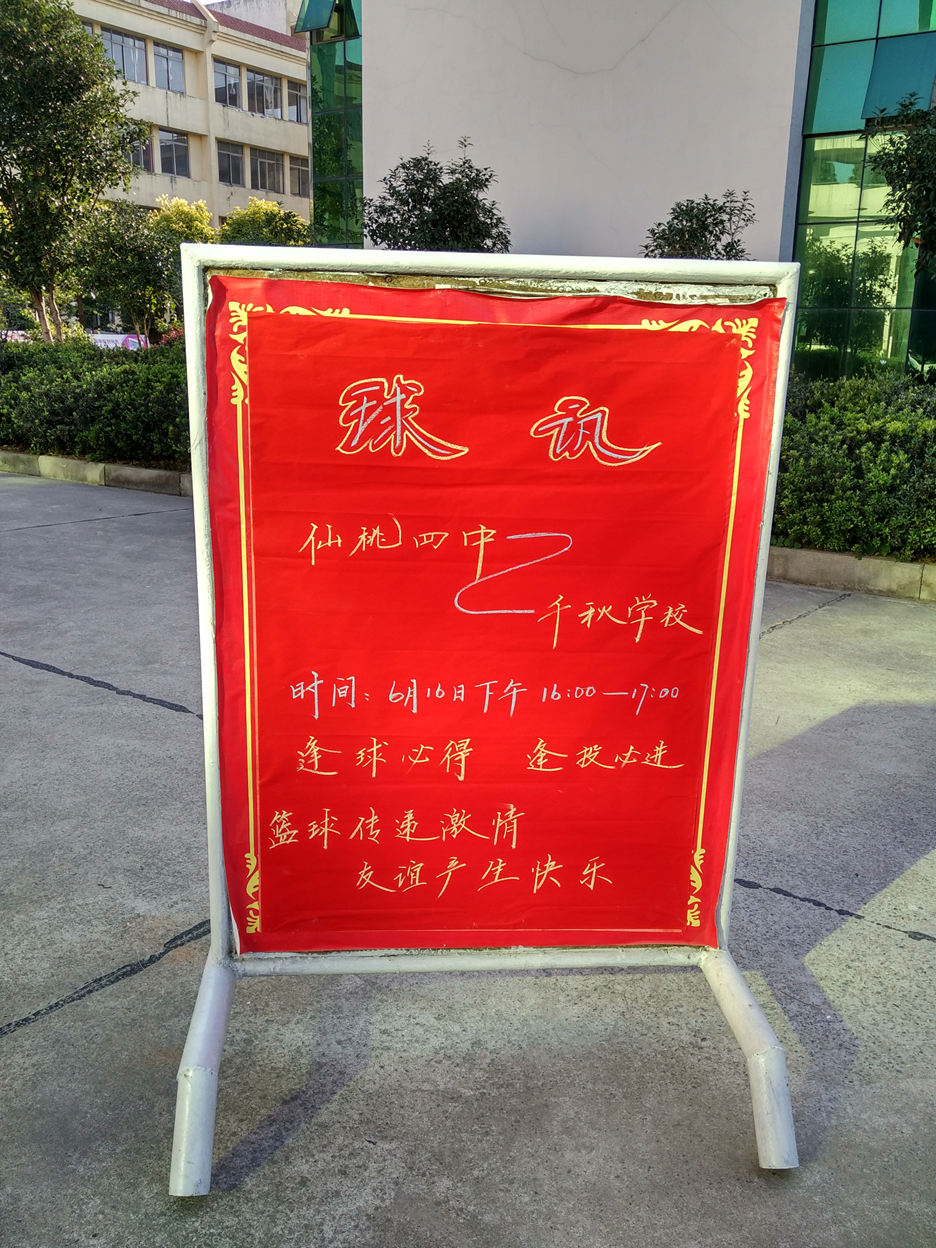 球讯
仙桃四中
千秋学校
时间：6月16日下午16:00—17:00
逢球必得 逢投必进
篮球传递激情
友谊产生快乐